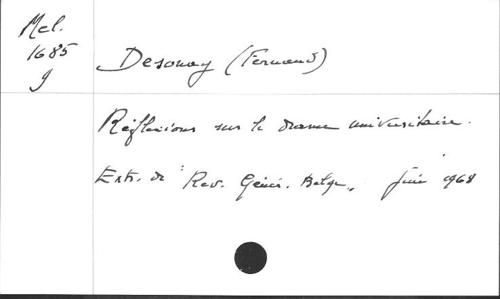 Mel.
1685
g
Desonay (Fernand)
Réflexions sur le drame universitaire.
Extr. de "Rev. Génér. Belge", Juin 1968